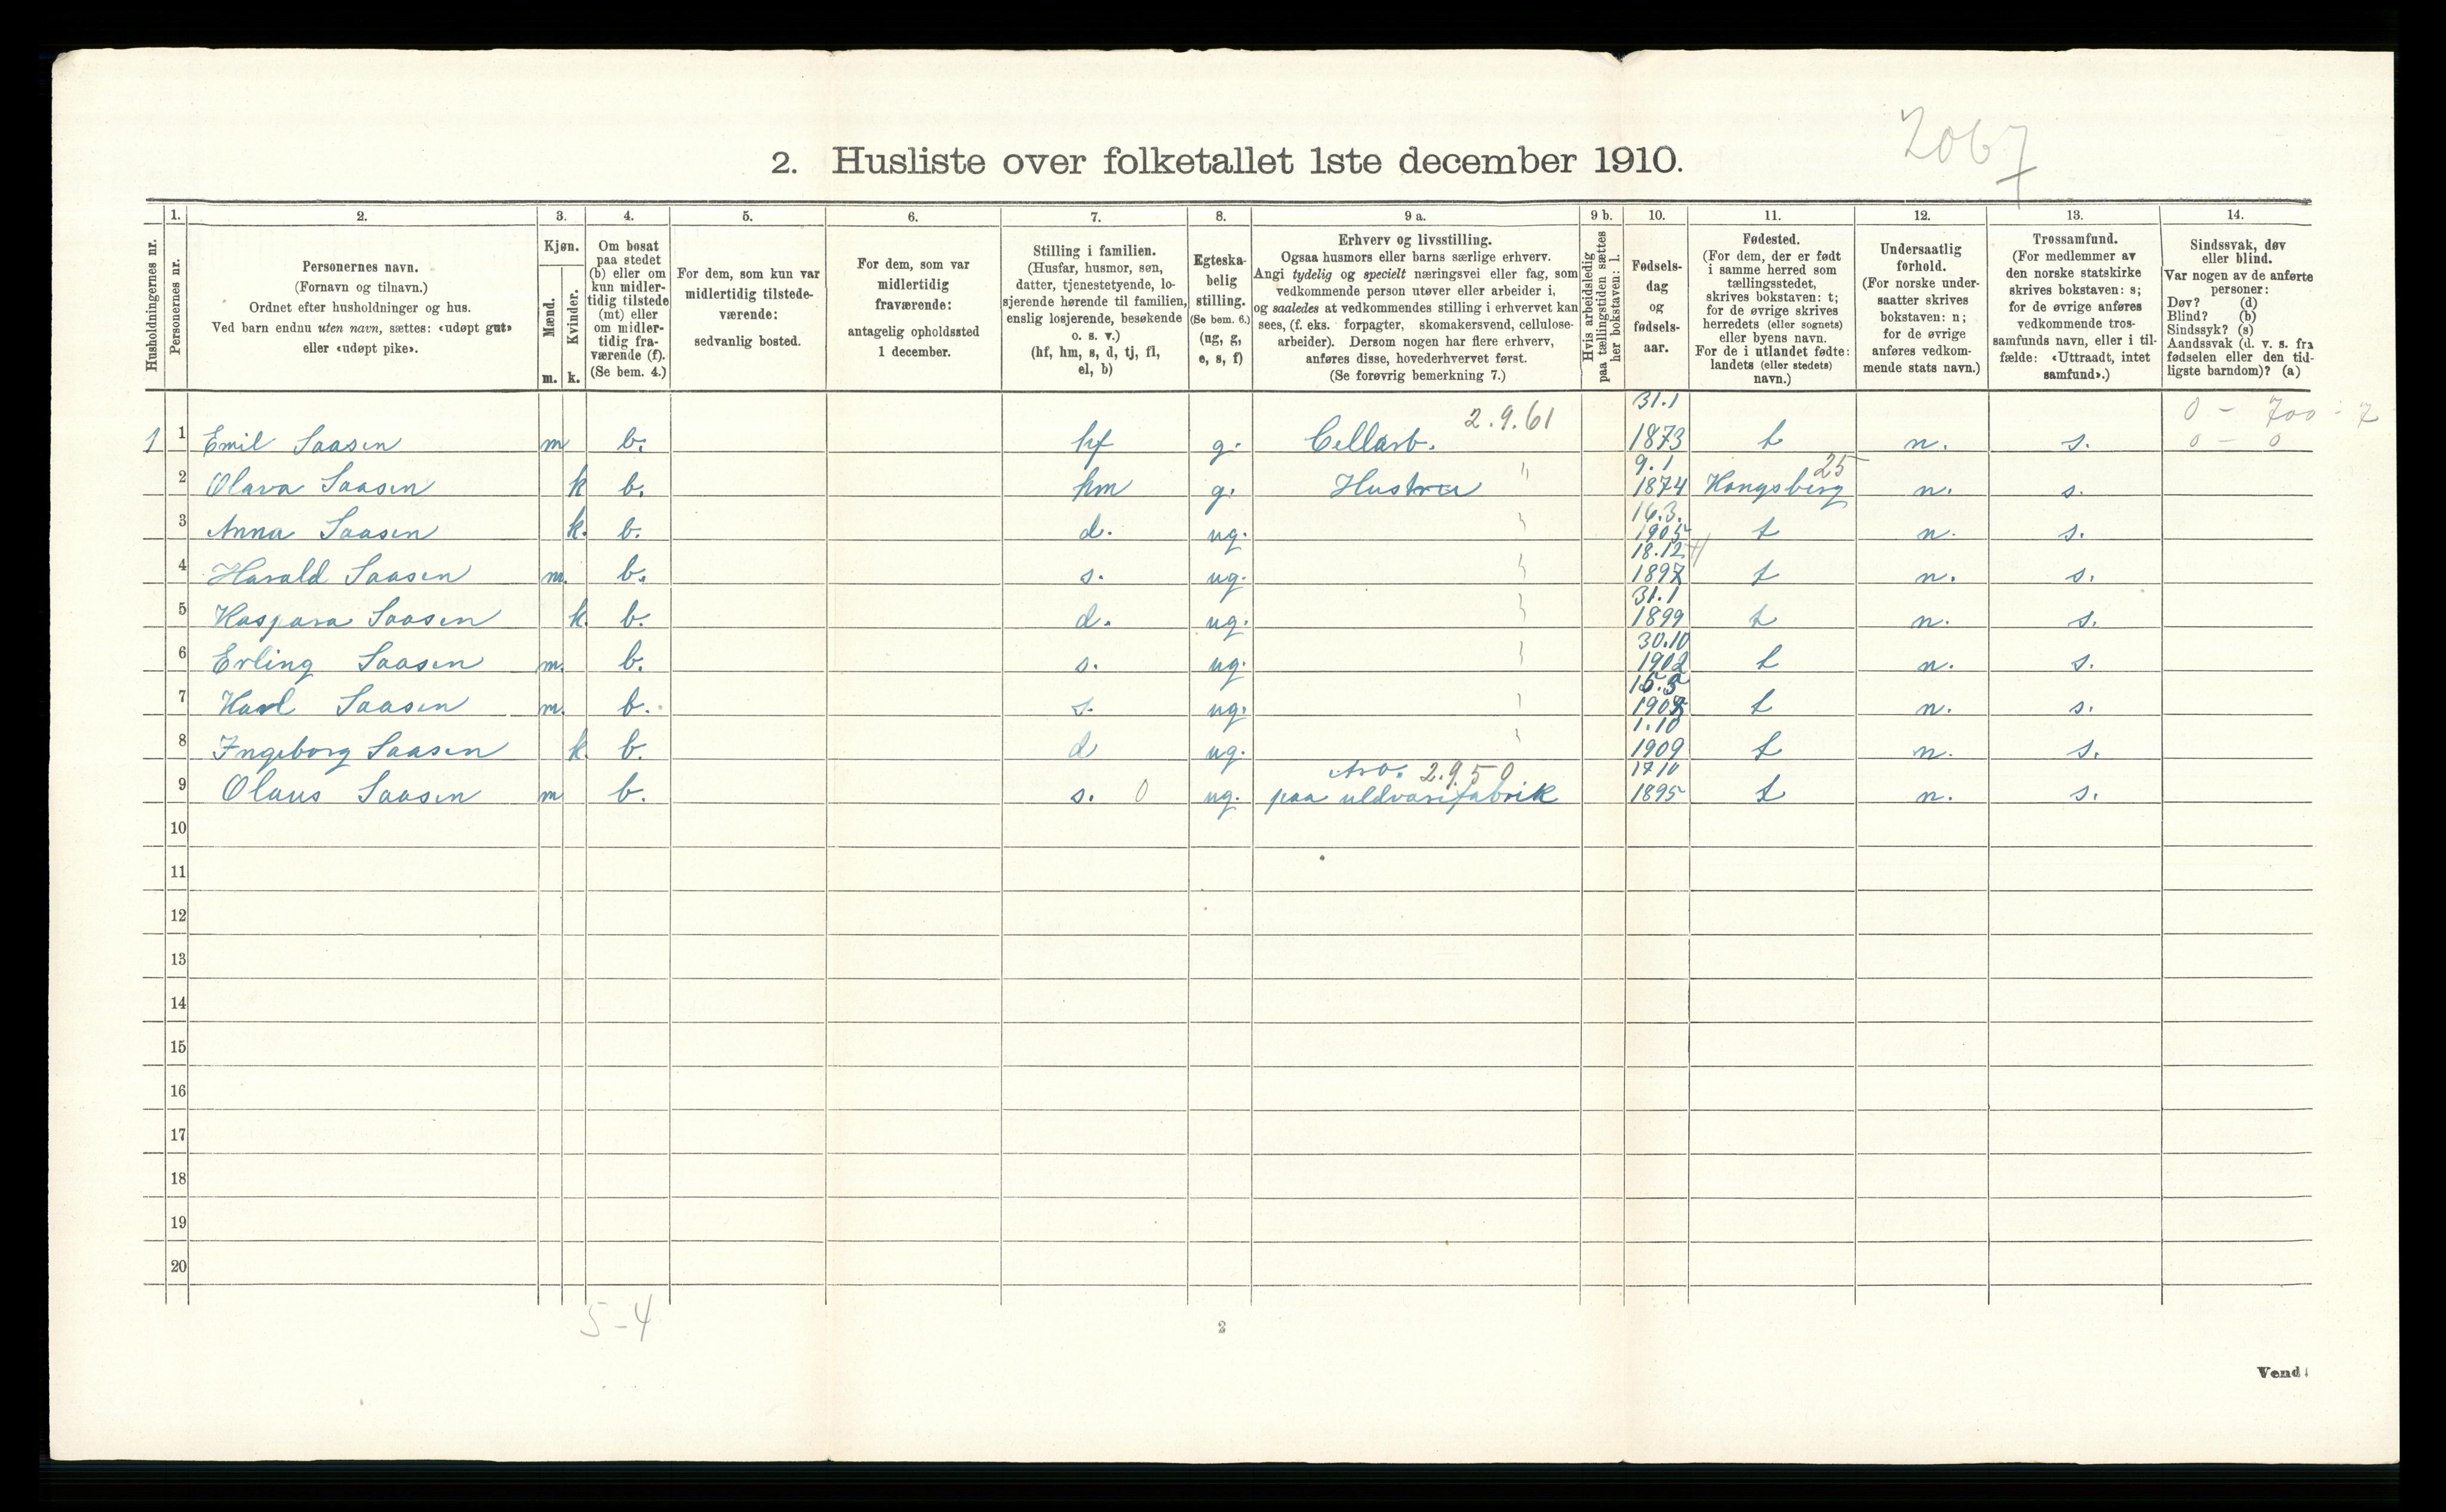 2067
2. Husliste over folketallet 1ste december 1910.
Husholdningernes nr.
1.
Personernes nr.
2.
Personernes navn.
(Fornavn og tilnavn.)
Ordnet efter husholdninger og hus.
Ved barn endnu uten navn, sættes: «udøpt gut»
eller «udøpt pike».
3.
Kjøn.
Mænd.
m.
Kvinder.
k.
4.
Om bosat
paa stedet
(b) eller om
kun midler-
tidig tilstede
(mt) eller
om midler-
tidig fra-
værende (f).
(Se bem. 4.)
5.
For dem, som kun var
midlertidig tilstede-
værende:
sedvanlig bosted.
6.
For dem, som var
midlertidig
fraværende:
antagelig opholdssted
1 december.
7.
Stilling i familien.
(Husfar, husmor, søn,
datter, tjenestetyende, lo-
sjerende hørende til familien,
enslig losjerende, besøkende
o. s. v.)
(hf, hm, s, d, tj, fl,
el, b)
8.
Egteska-
belig
stilling.
(Se bem. 6.)
(ug, g,
e, s, f)
9 a.
Erhverv og livsstilling.
Ogsaa husmors eller barns særlige erhverv.
Angi tydelig og specielt næringsvei eller fag, som
vedkommende person utøver eller arbeider i,
og saaledes at vedkommendes stilling i erhvervet kan
sees, (f. eks. forpagter, skomakersvend, cellulose-
arbeider). Dersom nogen har flere erhverv,
anføres disse, hovederhvervet først.
(Se forøvrig bemerkning 7.)
9 b.
Hvis arbeidsledig
paa tællingstiden sættes
her bokstaven: l.
10.
Fødsels-
dag
og
fødsels-
aar.
11.
Fødested.
(For dem, der er født
i samme herred som
tællingsstedet,
skrives bokstaven: t;
for de øvrige skrives
herredets (eller sognets)
eller byens navn.
For de i utlandet fødte:
landets (eller stedets)
navn.)
12.
Undersaatlig
forhold.
(For norske under-
saatter skrives
bokstaven: n;
for de øvrige
anføres vedkom-
mende stats navn.)
13.
Trossamfund.
(For medlemmer av
den norske statskirke
skrives bokstaven: s;
for de øvrige anføres
vedkommende tros-
samfunds navn, eller i til-
fælde: «Uttraadt, intet
samfund».)
14.
Sindssvak, døv
eller blind.
Var nogen av de anførte
personer:
Døv? (d)
Blind? (b)
Sindssyk? (s)
Aandssvak (d. v. s. fra
fødselen eller den tid-
ligste barndom)? (a)
31.1 0 - 700 - 2
1 1 Emil Saasen m b. hf g. Cellarb. 2.9.61 1873 t n. s. 0 - 0
9.1 25
2 Olava Saasen k b. hm g. Hustru " 1874 Kongsberg n. s.
16.3.
3 Anna Saasen k. b. d. ug. 1905 t n. s.
18.12
4 Harald Saasen m. b. s. ug. 1897 t n. s.
31.1
5 Kaspara Saasen k. b. d. ug. 1899 t n. s.
30.10
6 Erling Saasen m. b. s. ug. 1902 t n. s.
15.5
7 Karl Saasen m. b. s. ug. t n. s.
1.10
8 Ingeborg Saasen k. b. d ug. 1909 t n. s.
2.9.50 17 10
9 Olaus Saasen m b. s. 0 ug. paa uldvarefabrik 1895 t n. s.
10
11
12
13
14
15
16
17
18
19
20
5-4
2
Vend!